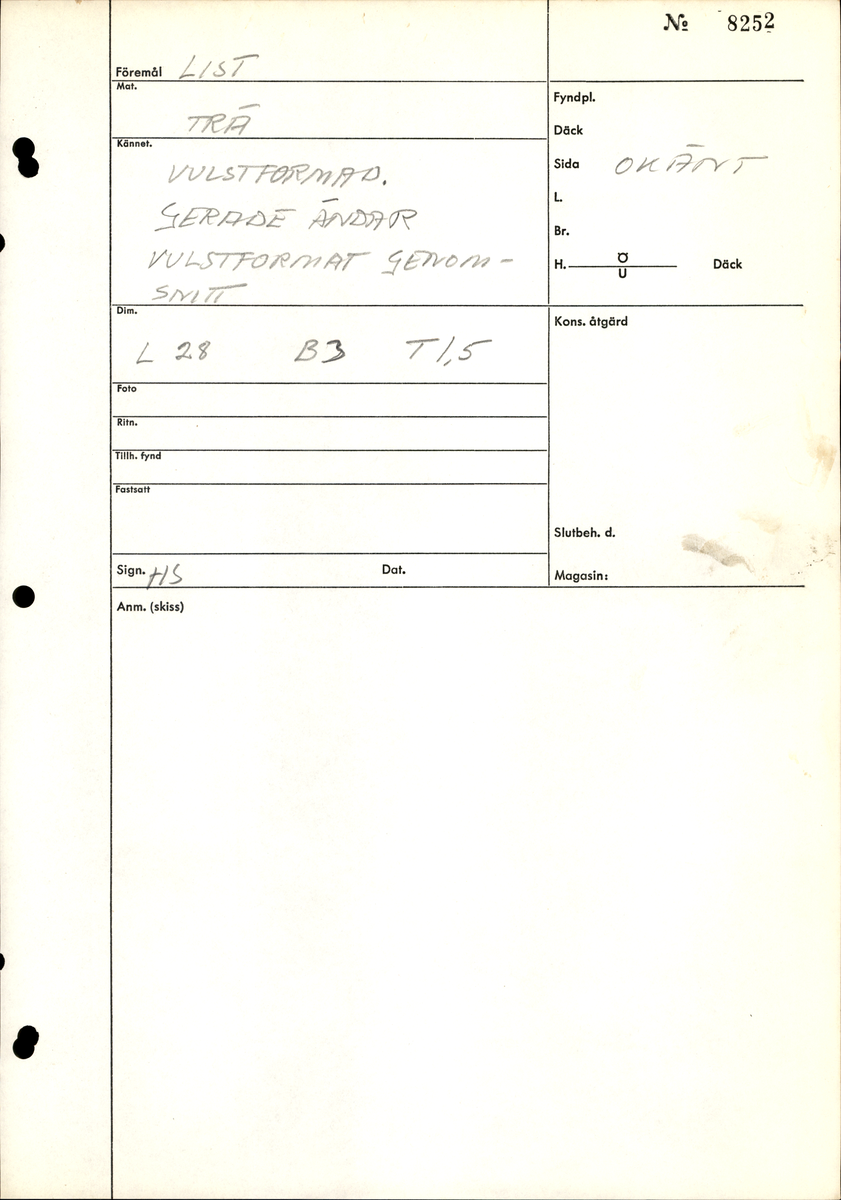 № 8252
Föremål LIST
Mat.
TRÄ
Kännet.
VULSTFORMAD.
GERADE ÄNDAR
VULSTFORMAT GENOM-
SNITT
Dim.
L 28 B3 T 1,5
Foto
Ritn.
Tillh. fynd
Fastsatt
Sign. HS Dat.
Fyndpl.
Däck
Sida OKÄNT
L.
Br.
H. Ö Däck
U
Kons. åtgärd
Slutbeh. d.
Magasin:
Anm. (skiss)